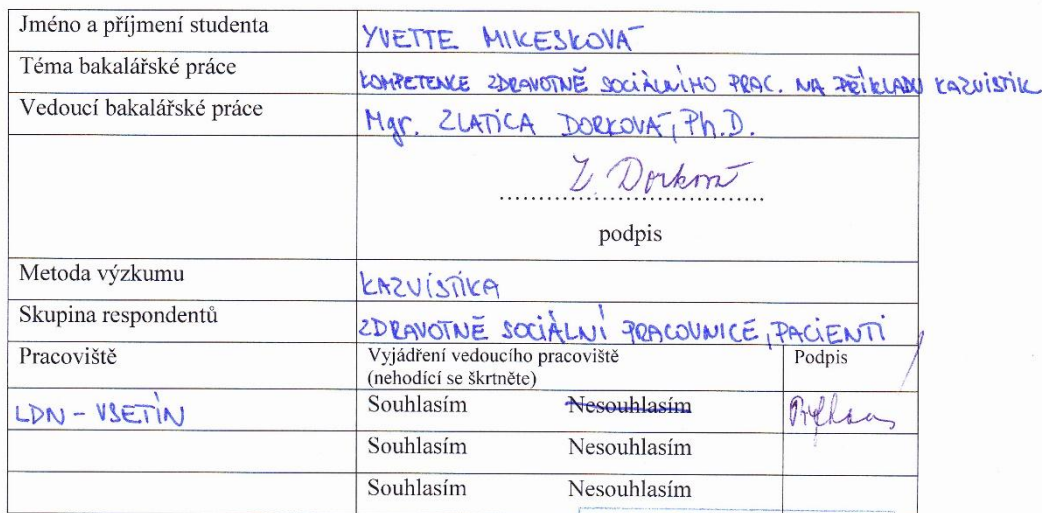 Jméno a příjmení studenta YVETTE MIKESKOVÁ
Téma bakalářské práce KOMPETENCE ZDRAVOTNĚ SOCIÁLNÍHO PRAC. NA PŘÍKLADU KAZUISTIK
Vedoucí bakalářské práce Mgr. ZLATICA DORKOVÁ, Ph.D.
Z. Dorková
podpis
Metoda výzkumu KAZUISTIKA
Skupina respondentů ZDRAVOTNĚ SOCIÁLNÍ PRACOVNICE, PACIENTI
Pracoviště Vyjádření vedoucího pracoviště Podpis
(nehodící se škrtněte)
LDN - VSETÍN Souhlasím Nesouhlasím
Souhlasím Nesouhlasím
Souhlasím Nesouhlasím